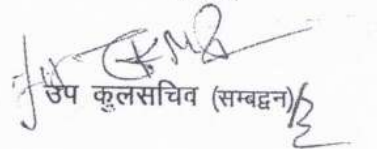 उप कुलसचिव (सम्बद्वन)